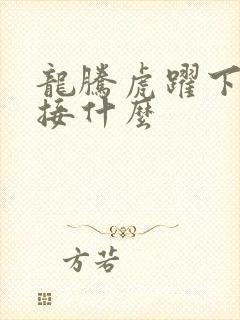 龍騰虎躍下
接什麼
方若